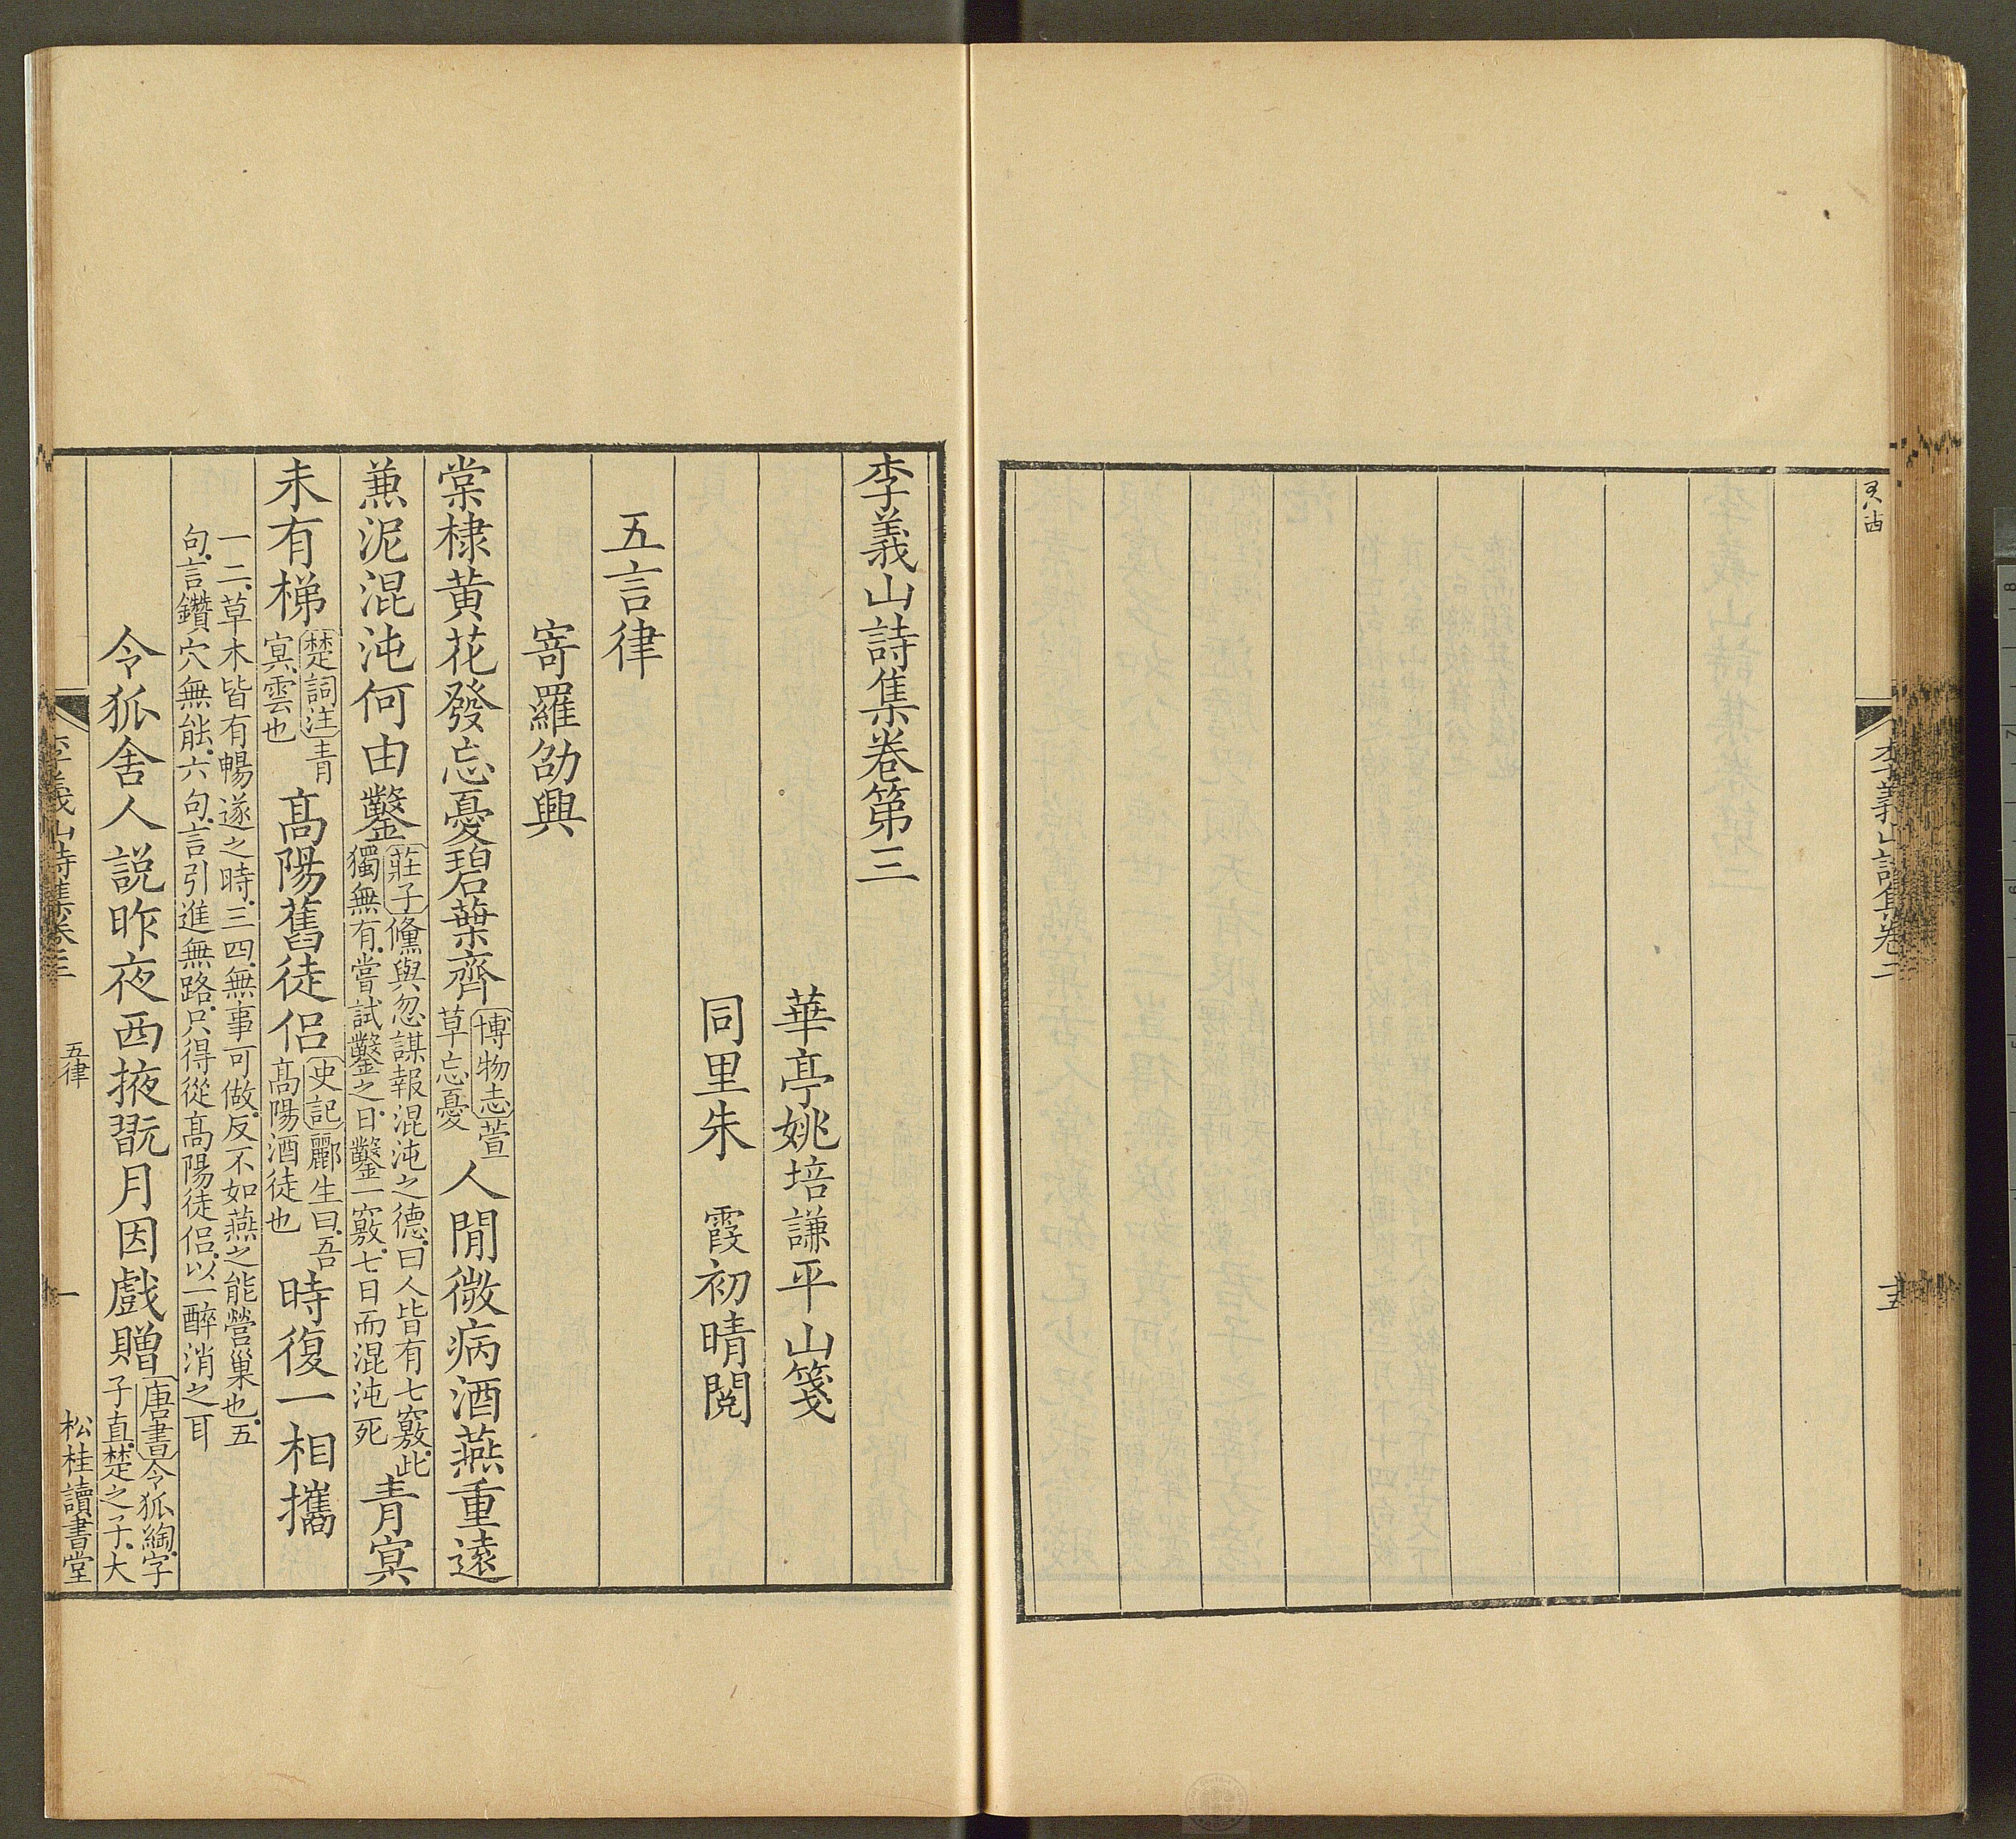 李義山詩集卷二
李義山詩集卷第三
華亭姚培謙平山箋
同里朱　霞初晴閱
五言律
寄羅劭興
棠棣黃花發忘憂碧葉齊博物志萱草忘憂人閒微病酒燕重遠
兼泥混沌何由鑿莊子儵與忽謀報混沌之德曰人皆有七竅此獨無有嘗試鑿之日鑿一竅七日而混沌死青冥
未有梯楚詞注青冥雲也高陽舊徒侶史記酈生曰吾高陽酒徒也時復一相攜
一二草木皆有暢遂之時三四無事可做反不如燕之能營巢也五
句言鑽穴無能六句言引進無路只得從高陽徒侶以一醉消之耳
令狐舍人說昨夜西掖翫月因戲贈唐書令狐綯字子直楚之子大
李義山詩集卷三　五律　一　松桂讀書堂